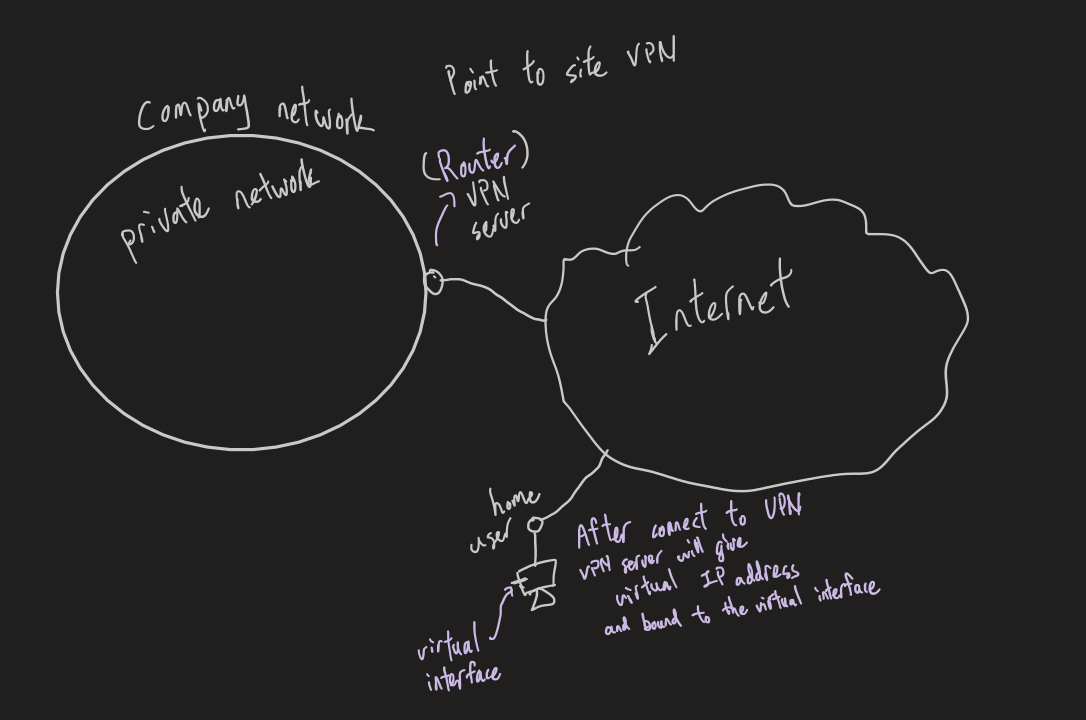 Point to site VPN
Company network
private network
(Router)
VPN
server
Internet
home
user
After connect to VPN
VPN server will give
virtual IP address
and bound to the virtual interface
virtual
interface